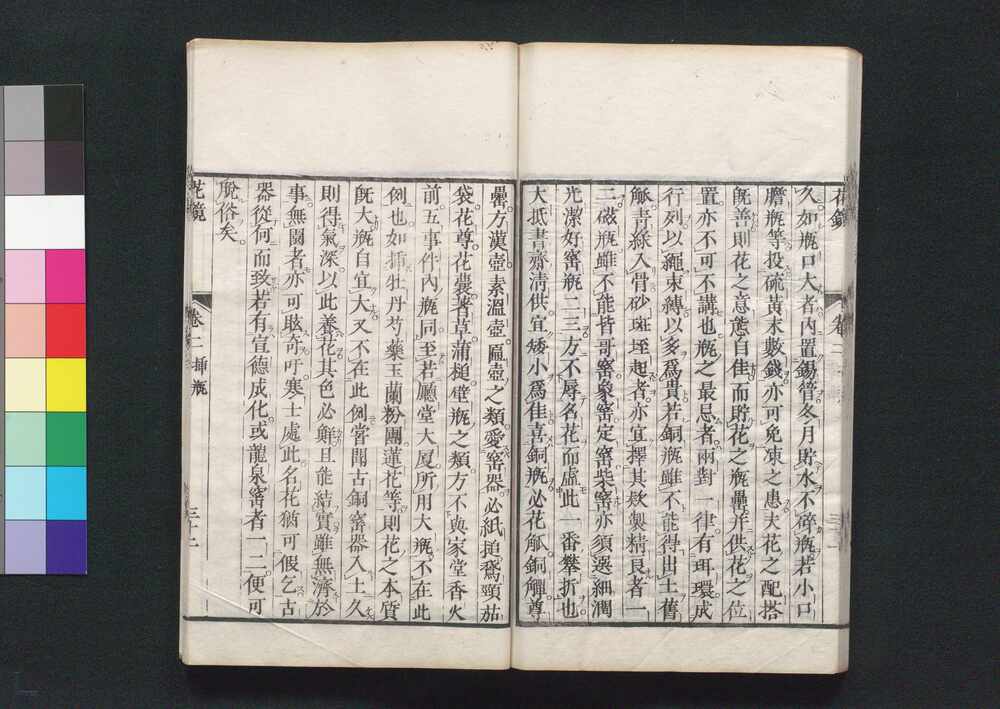 花鏡
卷二
久如瓶口大者內置錫管冬月貯水不碎瓶若小口
膽瓶等投硫黃末數錢亦可免凍之患夫花之配搭
旣善則花之意態自佳而貯花之瓶罍幷供花之位
置亦不可不講也瓶之最忌者兩對一律有珥環成
行列以繩束縛以多爲貴若銅瓶雖不能得出土舊
觚靑綠入骨砂斑垤起者亦宜擇其欵製精良者一
二磁瓶雖不能皆哥窰象窰定窰柴窰亦須選細潤
光潔好窰瓶二三方不辱名花而虛此一番攀折也
大抵書齋淸供宜矮小爲佳喜銅瓶必花觚銅觶尊
罍方漢壺素溫壺匾壺之類愛窰器必紙搥鵞頸茄
袋花尊花囊蓍草蒲槌壁瓶之類方不與家堂香火
前五事件內瓶同至若廳堂大厦所用大瓶不在此
例也如插牡丹芍藥玉蘭粉團蓮花等則花之本質
旣大瓶自宜大又不在此例嘗聞古銅窰器入土久
則得氣深以此養花其色必鮮且能結實雖無濟於
事無闘者亦可眩奇吁寒士處此名花猶可假乞古
器從何而致若有宣德成化或龍泉窰者一二便可
脫俗矣
花鏡
卷二 揷瓶
三十二